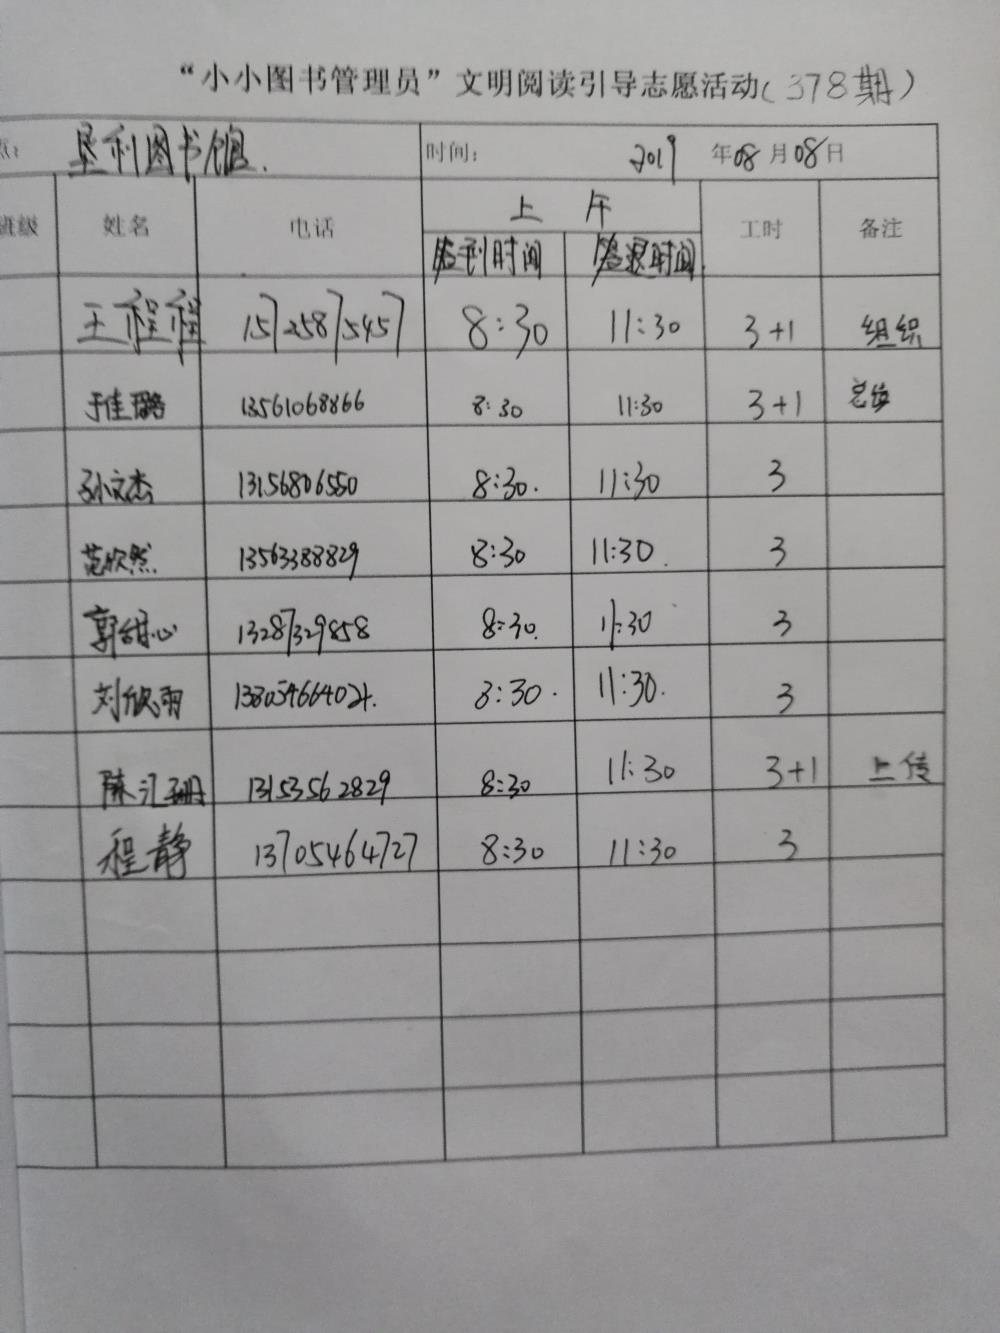 “小小图书管理员”文明阅读引导志愿活动(378期)
点: 垦利图书馆. 时间: 2019 年08月08日
班级 姓名 电话 上午 工时 备注
签到时间 签退时间
王程程 15725875457 8:30 11:30 3+1 组织
于佳璐 13561068866 8:30 11:30 3+1 总结
孙文杰 13156806550 8:30. 11:30 3
范欣然 13563388829 8:30 11:30. 3
郭甜心 13287329858 8:30. 11:30 3
刘欣雨 13805466402. 8:30. 11:30. 3
陈汇珊 13153562829 8:30 11:30 3+1 上传
程静 13705464727 8:30 11:30 3